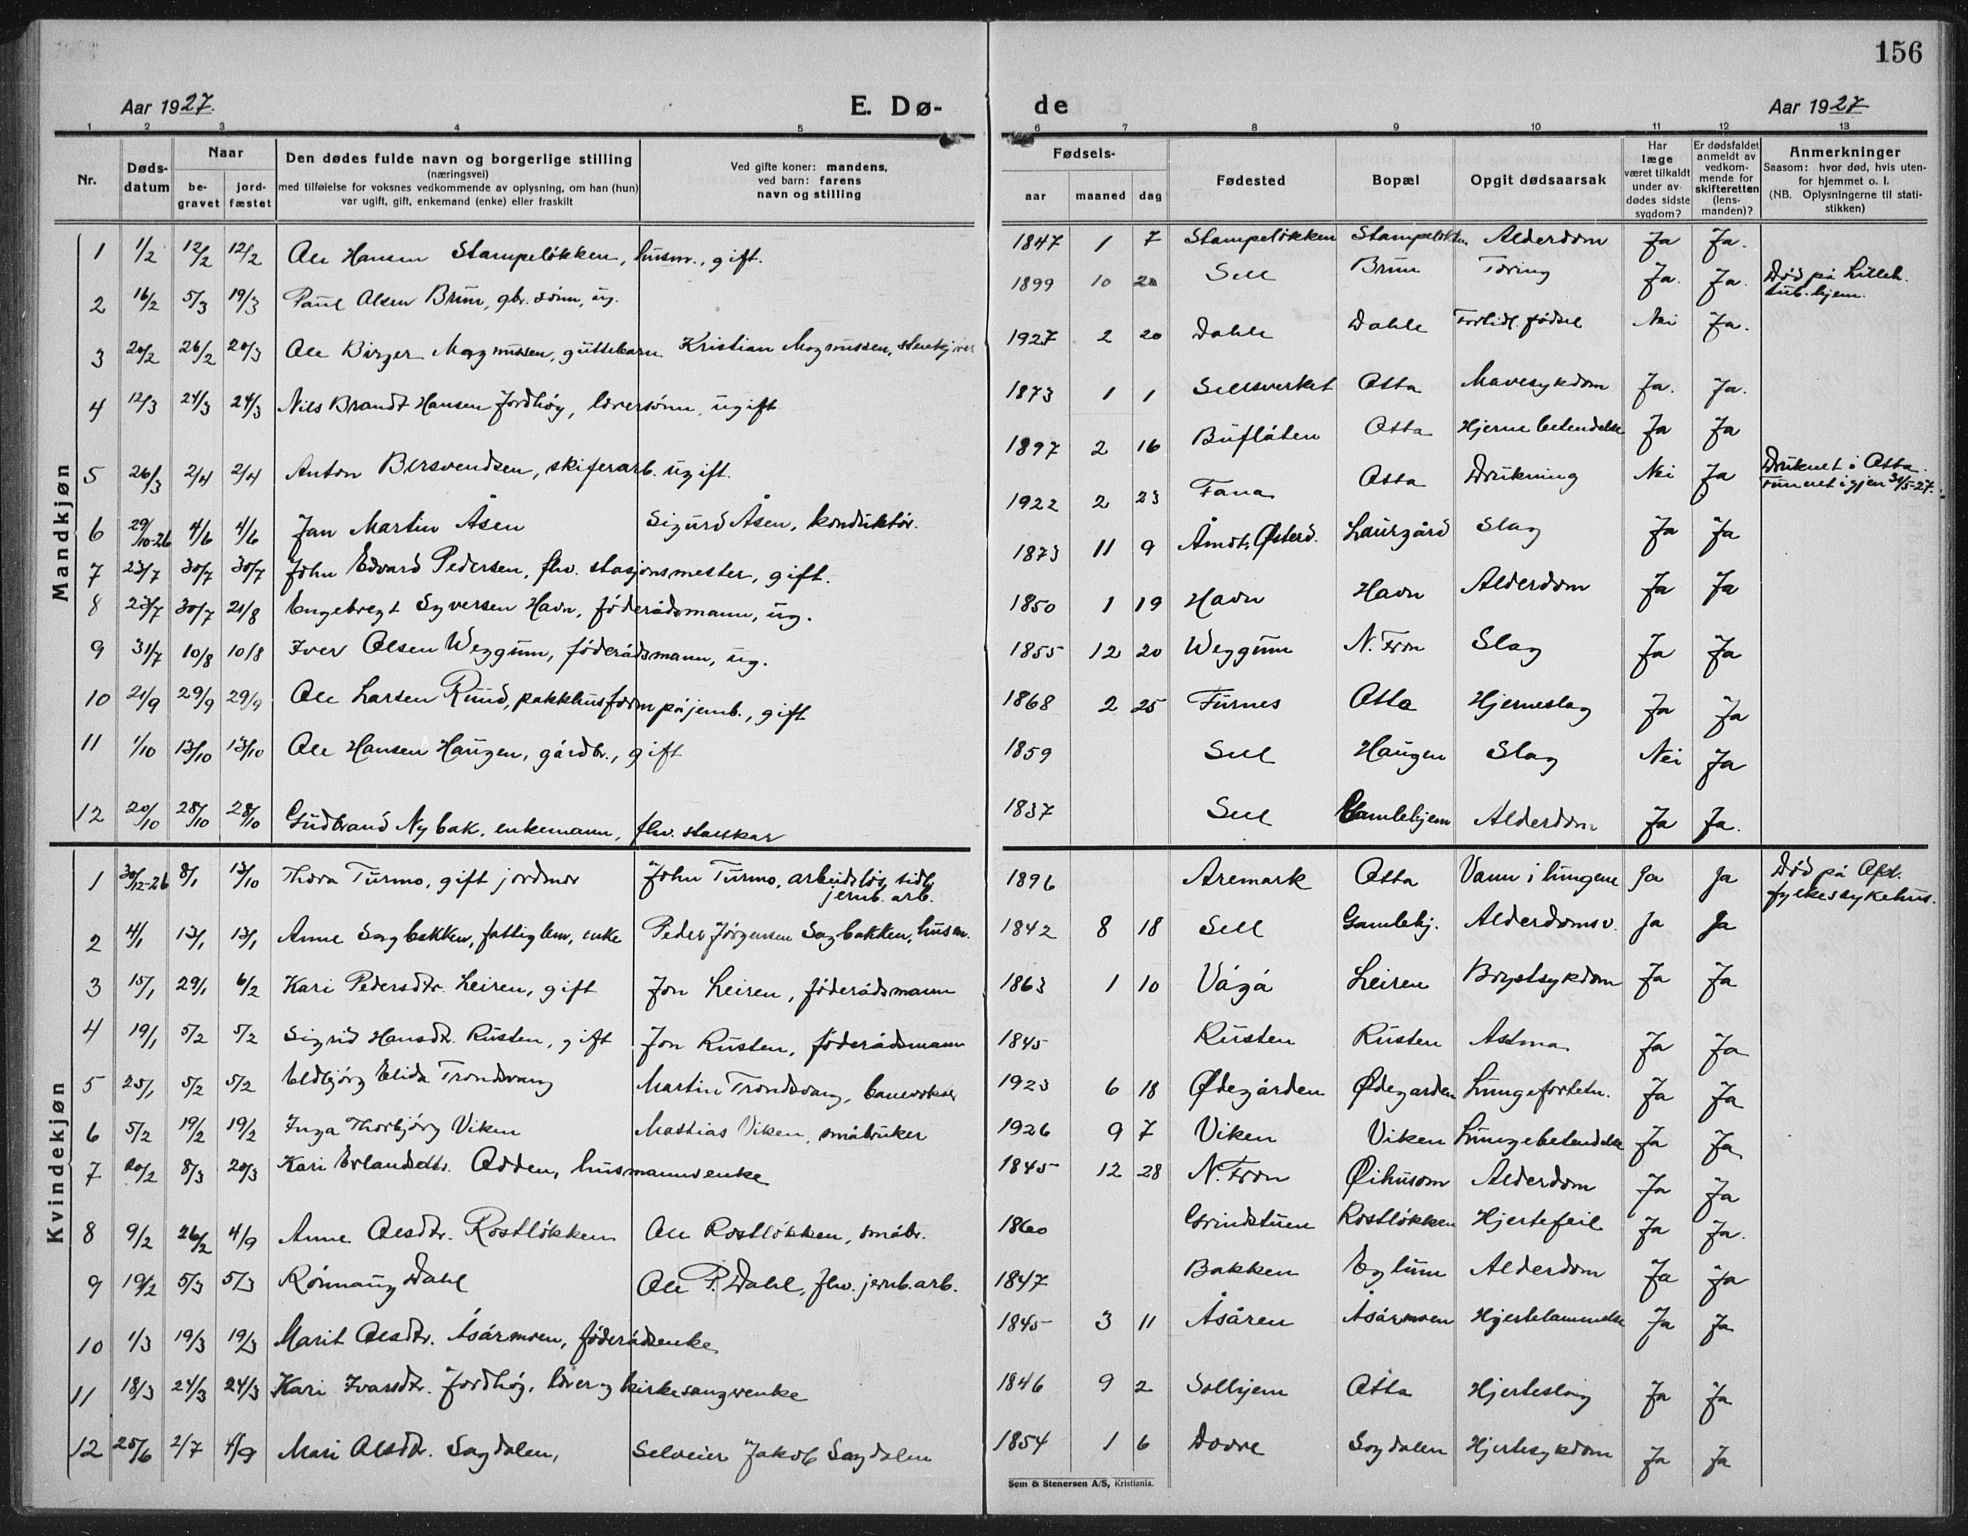 156
Aar 1927. E. Dø- de Aar 1927
1 2 3 4 5 6 7 8 9 10 11 12 13
Nr. Døds-datum Naar be-gravet jord-fæstet Den dødes fulde navn og borgerlige stilling (næringsvei) med tilføielse for voksnes vedkommende av oplysning, om han (hun) var ugift, gift, enkemand (enke) eller fraskilt Ved gifte koner: mandens, ved barn: farens navn og stilling Fødsels- aar maaned dag Fødested Bopæl Opgit dødsaarsak Har læge været tilkaldt under av-dødes sidste sygdom? Er dødsfaldet anmeldt av vedkom-mende for skifteretten (lens-manden)? Anmerkninger Saasom: hvor død, hvis uten-for hjemmet o. l. (NB. Oplysningerne til stati-stikken)
Mandkjøn
1 1/2 12/2 12/2 Ole Hansen Stampeløkken, husm., gift. 1847 1 7 Stampeløkken Stampeløkken Alderdom Ja Ja.
2 16/2 5/3 19/3 Paul Olsen Brun, gbr. sønn, ug. 1899 10 20 Sell Brun Tæring Ja. Ja. Død på Lilleh. tub. hjem.
3 20/2 26/2 20/3 Ole Birger Magnussen, guttebarn Kristian Magnussen, 1927 2 20 Dahle Dahle Fortidl. fødsel Nei Ja.
4 12/3 24/3 24/3 Nils Brandt Hansen Jordhøy, lærersønn, ugift 1873 1 1 Sellsverket Otta Mavesykdom Ja. Ja.
5 26/3 2/4 2/4 Anton Bersvendsen, skiferarb. ugift. 1897 2 16 Buflåten Otta Hjernebetendelse Ja Ja
6 29/10-26 4/6 4/6 Jan Martin Åsen Sigurd Åsen, konduktør. 1922 2 23 Fana Otta Drukning Nei Ja Druknet i Otta. Funnet igjen 31/5-27.
7 23/7 30/7 30/7 John Edvard Pedersen, fhv. stasjonsmester, gift. 1873 11 9 Åmot, Østerd. Laurgård Slag Ja Ja
8 23/7 30/7 21/8 Engebregt Syversen Havn, føderådsmann, ug. 1850 1 19 Havn Havn Alderdom Ja Ja
9 31/7 10/8 10/8 Iver Olsen Weggum, føderådsmann, ug. 1855 12 20 Weggum N. Fron Slag Ja Ja
10 21/9 29/9 29/9 Ole Larsen Ruud, pakkhusform. på jernb., gift 1868 2 25 Furnes Otta Hjerneslag Ja Ja
11 1/10 13/10 13/10 Ole Hansen Haugen, gårdbr., gift 1859 Sell Haugen Slag Nei Ja
12 20/10 28/10 28/10 Gudbrand Nybak, enkemann, fhv. 1837 Sell Gamlehjem Alderdom Ja Ja.
Kvindekjøn
1 30/12-26 8/1 13/10 Thora Turmo, gift jordmor John Turmo, arbeidsløs, tidl. jernb. arb. 1896 Aremark Otta Vann i lungene Ja Ja Død på Opl. fylkessykehus.
2 4/1 13/1 13/1 Anne Sagbakken, fattiglem, enke Peder Jørgensen Sagbakken, husm. 1842 8 18 Sell Gamlehj. Alderdomsv. Ja Ja
3 15/1 29/1 6/2 Kari Pedersdtr. Leiren, gift Jon Leiren, føderådsmann 1863 1 10 Vågå Leiren Brystsykdom Ja Ja
4 19/1 5/2 5/2 Sigrid Hansdtr. Rusten, gift Jon Rusten, føderådsmann 1845 Rusten Rusten Astma Ja Ja
5 25/1 5/2 5/2 Eldbjørg Elida Trondsvang Martin Trondsvang, banevokter 1923 6 18 Ødegården Ødegården Ja Ja
6 5/2 19/2 19/2 Inga Thorbjørg Viken Mathias Viken, småbruker 1926 9 7 Viken Viken Lungebetendelse Ja Ja
7 20/2 8/3 20/3 Kari Erlandsdtr. Odden, husmannsenke 1845 12 28 N. Fron Øihusom Alderdom Ja Ja
8 9/2 26/2 4/9 Anne Olsdtr. Rostløkken Ole Rostløkken, småbr. 1860 Grindstuen Rostløkken Hjertefeil Ja Ja.
9 19/2 5/3 5/3 Rønnaug Dahl Ole P. Dahl, fhv. jernb. arb. 1847 Bakken Eglum Alderdom Ja Ja
10 1/3 19/3 19/3 Marit Olsdtr. Åsårmoen, føderådsenke 1845 3 11 Åsåren Åsårmoen Hjertelammelse Ja Ja
11 18/3 24/3 24/3 Kari Ivarsdtr. Jordhøy, lærer og kirkesangerenke 1846 9 2 Solhjem Otta Hjerteslag Ja Ja
12 25/6 2/7 4/9 Mari Olsdtr. Sagdalen, Selveier Jakob Sagdalen 1854 1 6 Dovre Sagdalen Hjertesykdom Ja Ja
Sem & Stenersen A/S, Kristiania.